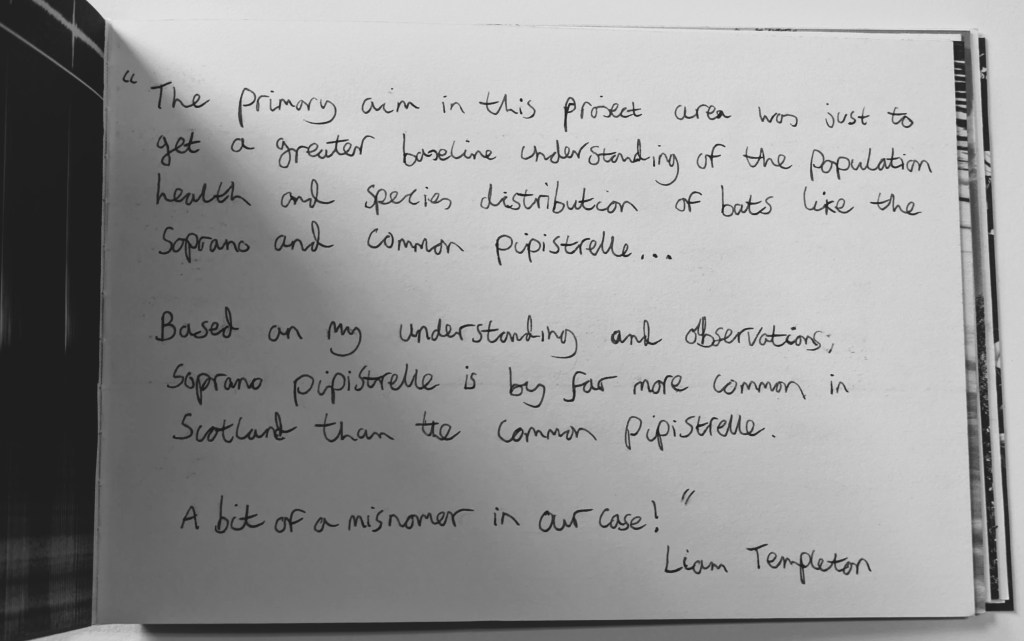 "The primary aim in this project area was just to
get a greater baseline understanding of the population
health and species distribution of bats like the
Soprano and common pipistrelle...
Based on my understanding and observations,
Soprano pipistrelle is by far more common in
Scotland than the common pipistrelle.
A bit of a misnomer in our case!"
Liam Templeton